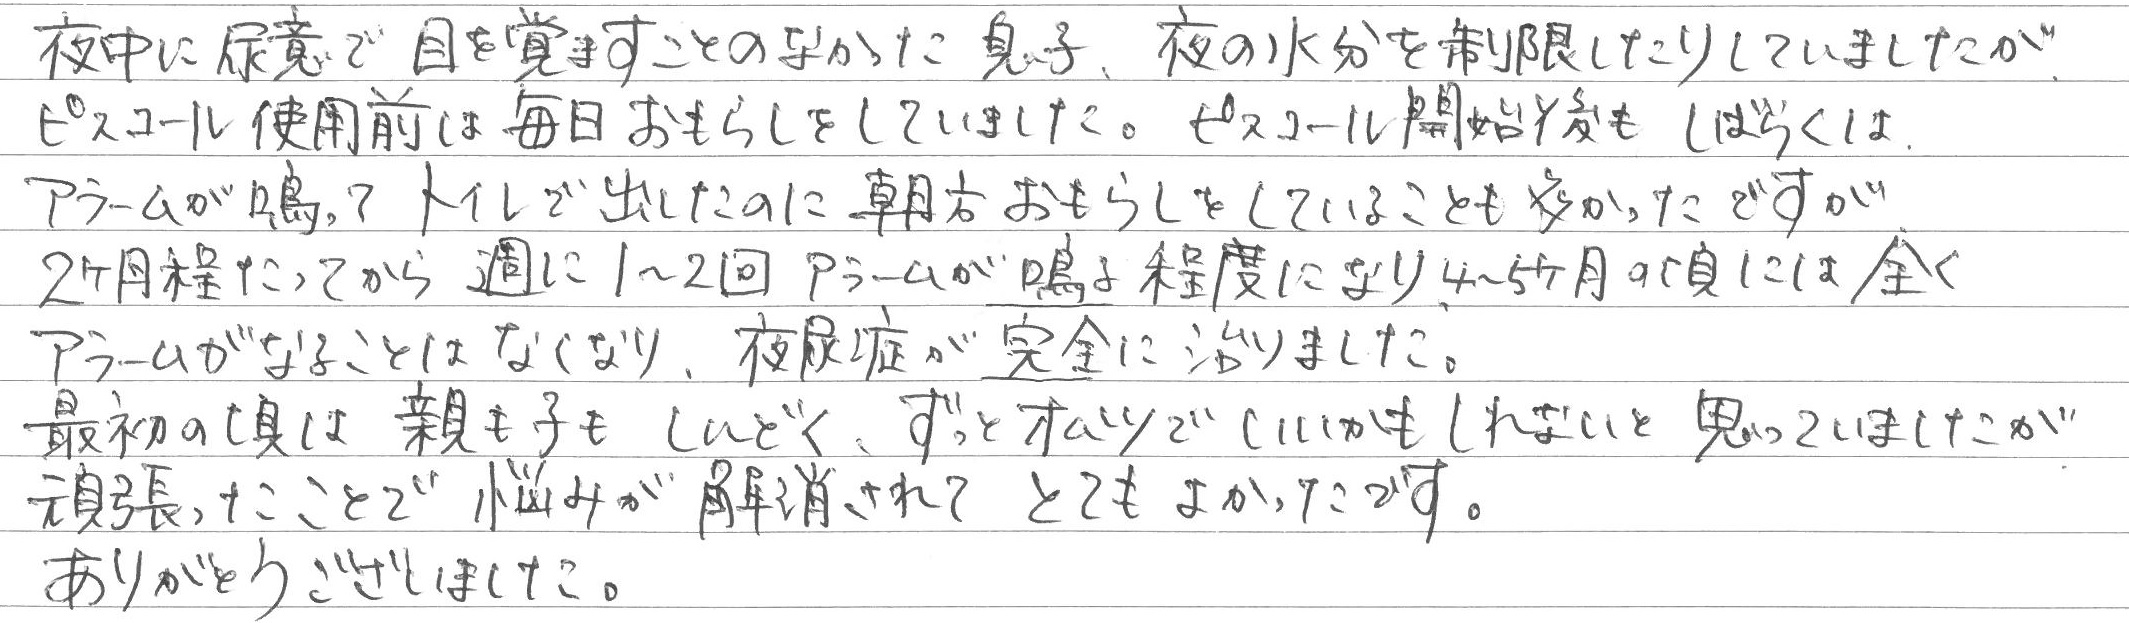 夜中に尿意で目を覚ますことのなかった息子、夜の水分を制限したりしていましたが、
ピスコール使用前は毎日おもらしをしていました。ピスコール開始後もしばらくは、
アラームが鳴ってトイレで出したのに朝方おもらしをしていることも多かったですが
2ヶ月程たってから週に1~2回アラームが鳴る程度になり4~5ヶ月の頃には全く
アラームがなることはなくなり、夜尿症が完全に治りました。
最初の頃は親も子もしんどく、ずっとオムツでいいかもしれないと思っていましたが
頑張ったことで悩みが解消されてとてもよかったです。
ありがとうございました。